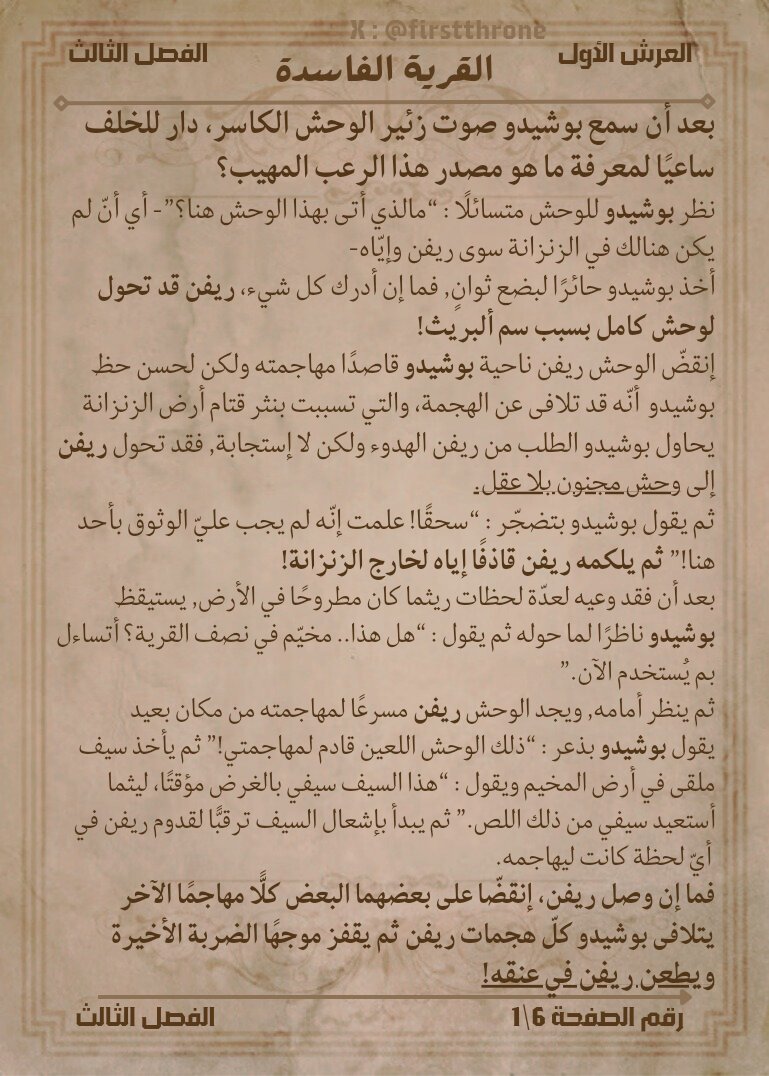 X : @firstthrone
العرش الأول
القرية الفاسدة
الفصل الثالث
بعد أن سمع بوشيدو صوت زئير الوحش الكاسر، دار للخلف
ساعيًا لمعرفة ما هو مصدر هذا الرعب المهيب؟
نظر بوشيدو للوحش متسائلًا : “مالذي أتى بهذا الوحش هنا؟”- أي أنّ لم
يكن هنالك في الزنزانة سوى ريفن وإيّاه-
أخذ بوشيدو حائرًا لبضع ثوانٍ, فما إن أدرك كل شيء، ريفن قد تحول
لوحش كامل بسبب سم ألبريث!
إنقضّ الوحش ريفن ناحية بوشيدو قاصدًا مهاجمته ولكن لحسن حظ
بوشيدو أنّه قد تلافى عن الهجمة، والتي تسببت بنثر قتام أرض الزنزانة
يحاول بوشيدو الطلب من ريفن الهدوء ولكن لا إستجابة, فقد تحول ريفن
إلى وحش مجنون بلا عقل.
ثم يقول بوشيدو بتضجّر : “سحقًا! علمت إنّه لم يجب عليّ الوثوق بأحد
هنا!” ثم يلكمه ريفن قاذفًا إياه لخارج الزنزانة!
بعد أن فقد وعيه لعدّة لحظات ريثما كان مطروحًا في الأرض, يستيقظ
بوشيدو ناظرًا لما حوله ثم يقول : “هل هذا.. مخيّم في نصف القرية؟ أتساءل
بم يُستخدم الآن.”
ثم ينظر أمامه, ويجد الوحش ريفن مسرعًا لمهاجمته من مكان بعيد
يقول بوشيدو بذعر : “ذلك الوحش اللعين قادم لمهاجمتي!” ثم يأخذ سيف
ملقى في أرض المخيم ويقول : “هذا السيف سيفي بالغرض مؤقتًا، ليثما
أستعيد سيفي من ذلك اللص.” ثم يبدأ بإشعال السيف ترقبًّا لقدوم ريفن في
أيّ لحظة كانت ليهاجمه.
فما إن وصل ريفن، إنقضّا على بعضهما البعض كلًّا مهاجمًا الآخر
يتلافى بوشيدو كلّ هجمات ريفن ثم يقفز موجهًا الضربة الأخيرة
ويطعن ريفن في عنقه!
رقم الصفحة 6\1
الفصل الثالث